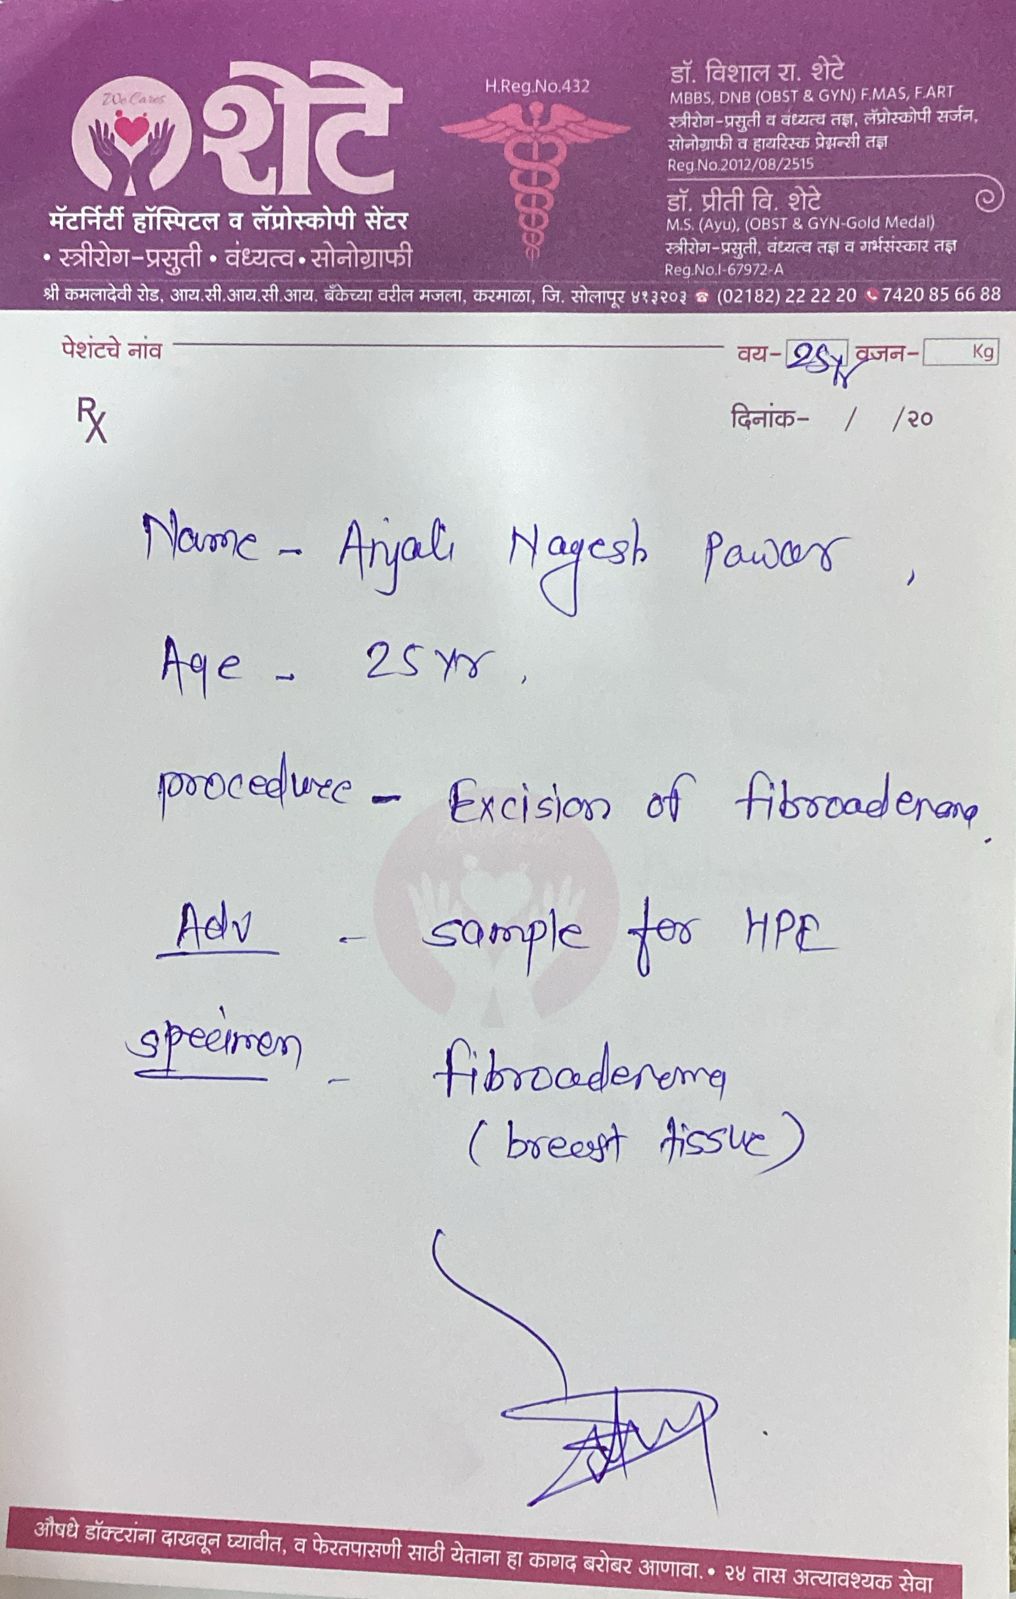 We Cares
शेटे
मॅटर्निटी हॉस्पिटल व लॅप्रोस्कोपी सेंटर
• स्त्रीरोग-प्रसुती • वंध्यत्व • सोनोग्राफी
H.Reg.No.432
डॉ. विशाल रा. शेटे
MBBS, DNB (OBST & GYN) F.MAS, F.ART
स्त्रीरोग-प्रसुती व वंध्यत्व तज्ञ, लॅप्रोस्कोपी सर्जन,
सोनोग्राफी व हायरिस्क प्रेग्नन्सी तज्ञ
Reg.No.2012/08/2515
डॉ. प्रीती वि. शेटे
M.S. (Ayu), (OBST & GYN-Gold Medal)
स्त्रीरोग-प्रसुती, वंध्यत्व तज्ञ व गर्भसंस्कार तज्ञ
Reg.No.I-67972-A
श्री कमलादेवी रोड, आय.सी.आय.सी.आय. बँकेच्या वरील मजला, करमाळा, जि. सोलापूर ४१३२०३ ☎ (02182) 22 22 20 7420 85 66 88
पेशंटचे नांव वय- 25yr वजन- Kg
Rx दिनांक- / /२०
Name - Anjali Nagesh Pawar,
Age - 25 yr.
procedure - Excision of fibroadenoma.
Adv - sample for HPE
specimen - fibroadenoma
(breast tissue)
औषधे डॉक्टरांना दाखवून घ्यावीत, व फेरतपासणी साठी येताना हा कागद बरोबर आणावा. • २४ तास अत्यावश्यक सेवा